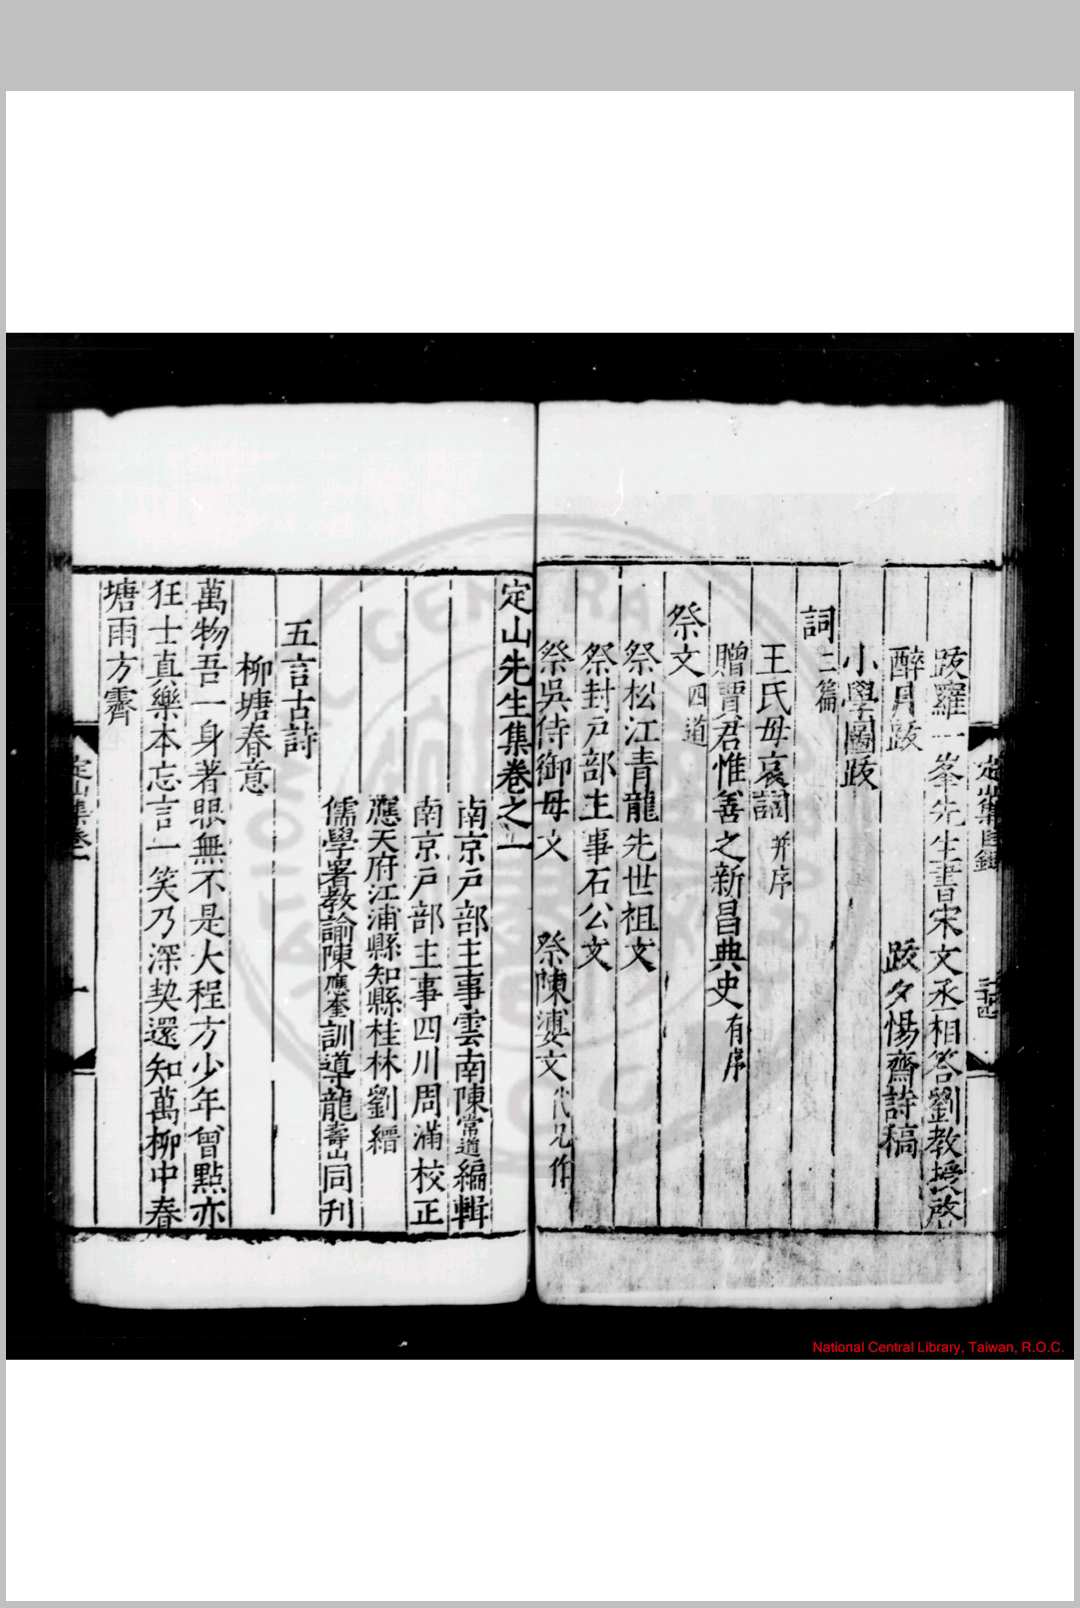 跋羅一峯先生書宋文丞相答劉教授啓
醉月跋
跋夕惕齋詩稿
小學圖跋
詞二篇
王氏母哀詞并序
贈賈君惟善之新昌典史有序
祭文四道
祭松江青龍先世祖文
祭封戸部主事石公文
祭吳侍御母文 祭陳㜑文代兄作
定山先生集卷之一
南京戸部主事雲南陳常道編輯
南京戸部主事四川周滿校正
應天府江浦縣知縣桂林劉縉
儒學署教諭陳應奎訓導龍壽山同刊
五言古詩
柳塘春意
萬物吾一身著眼無不是大程方少年曾點亦
狂士真樂本忘言一笑乃深契還知萬柳中春
塘雨方霽
定山集卷一
一
National Central Library, Taiwan, R.O.C.